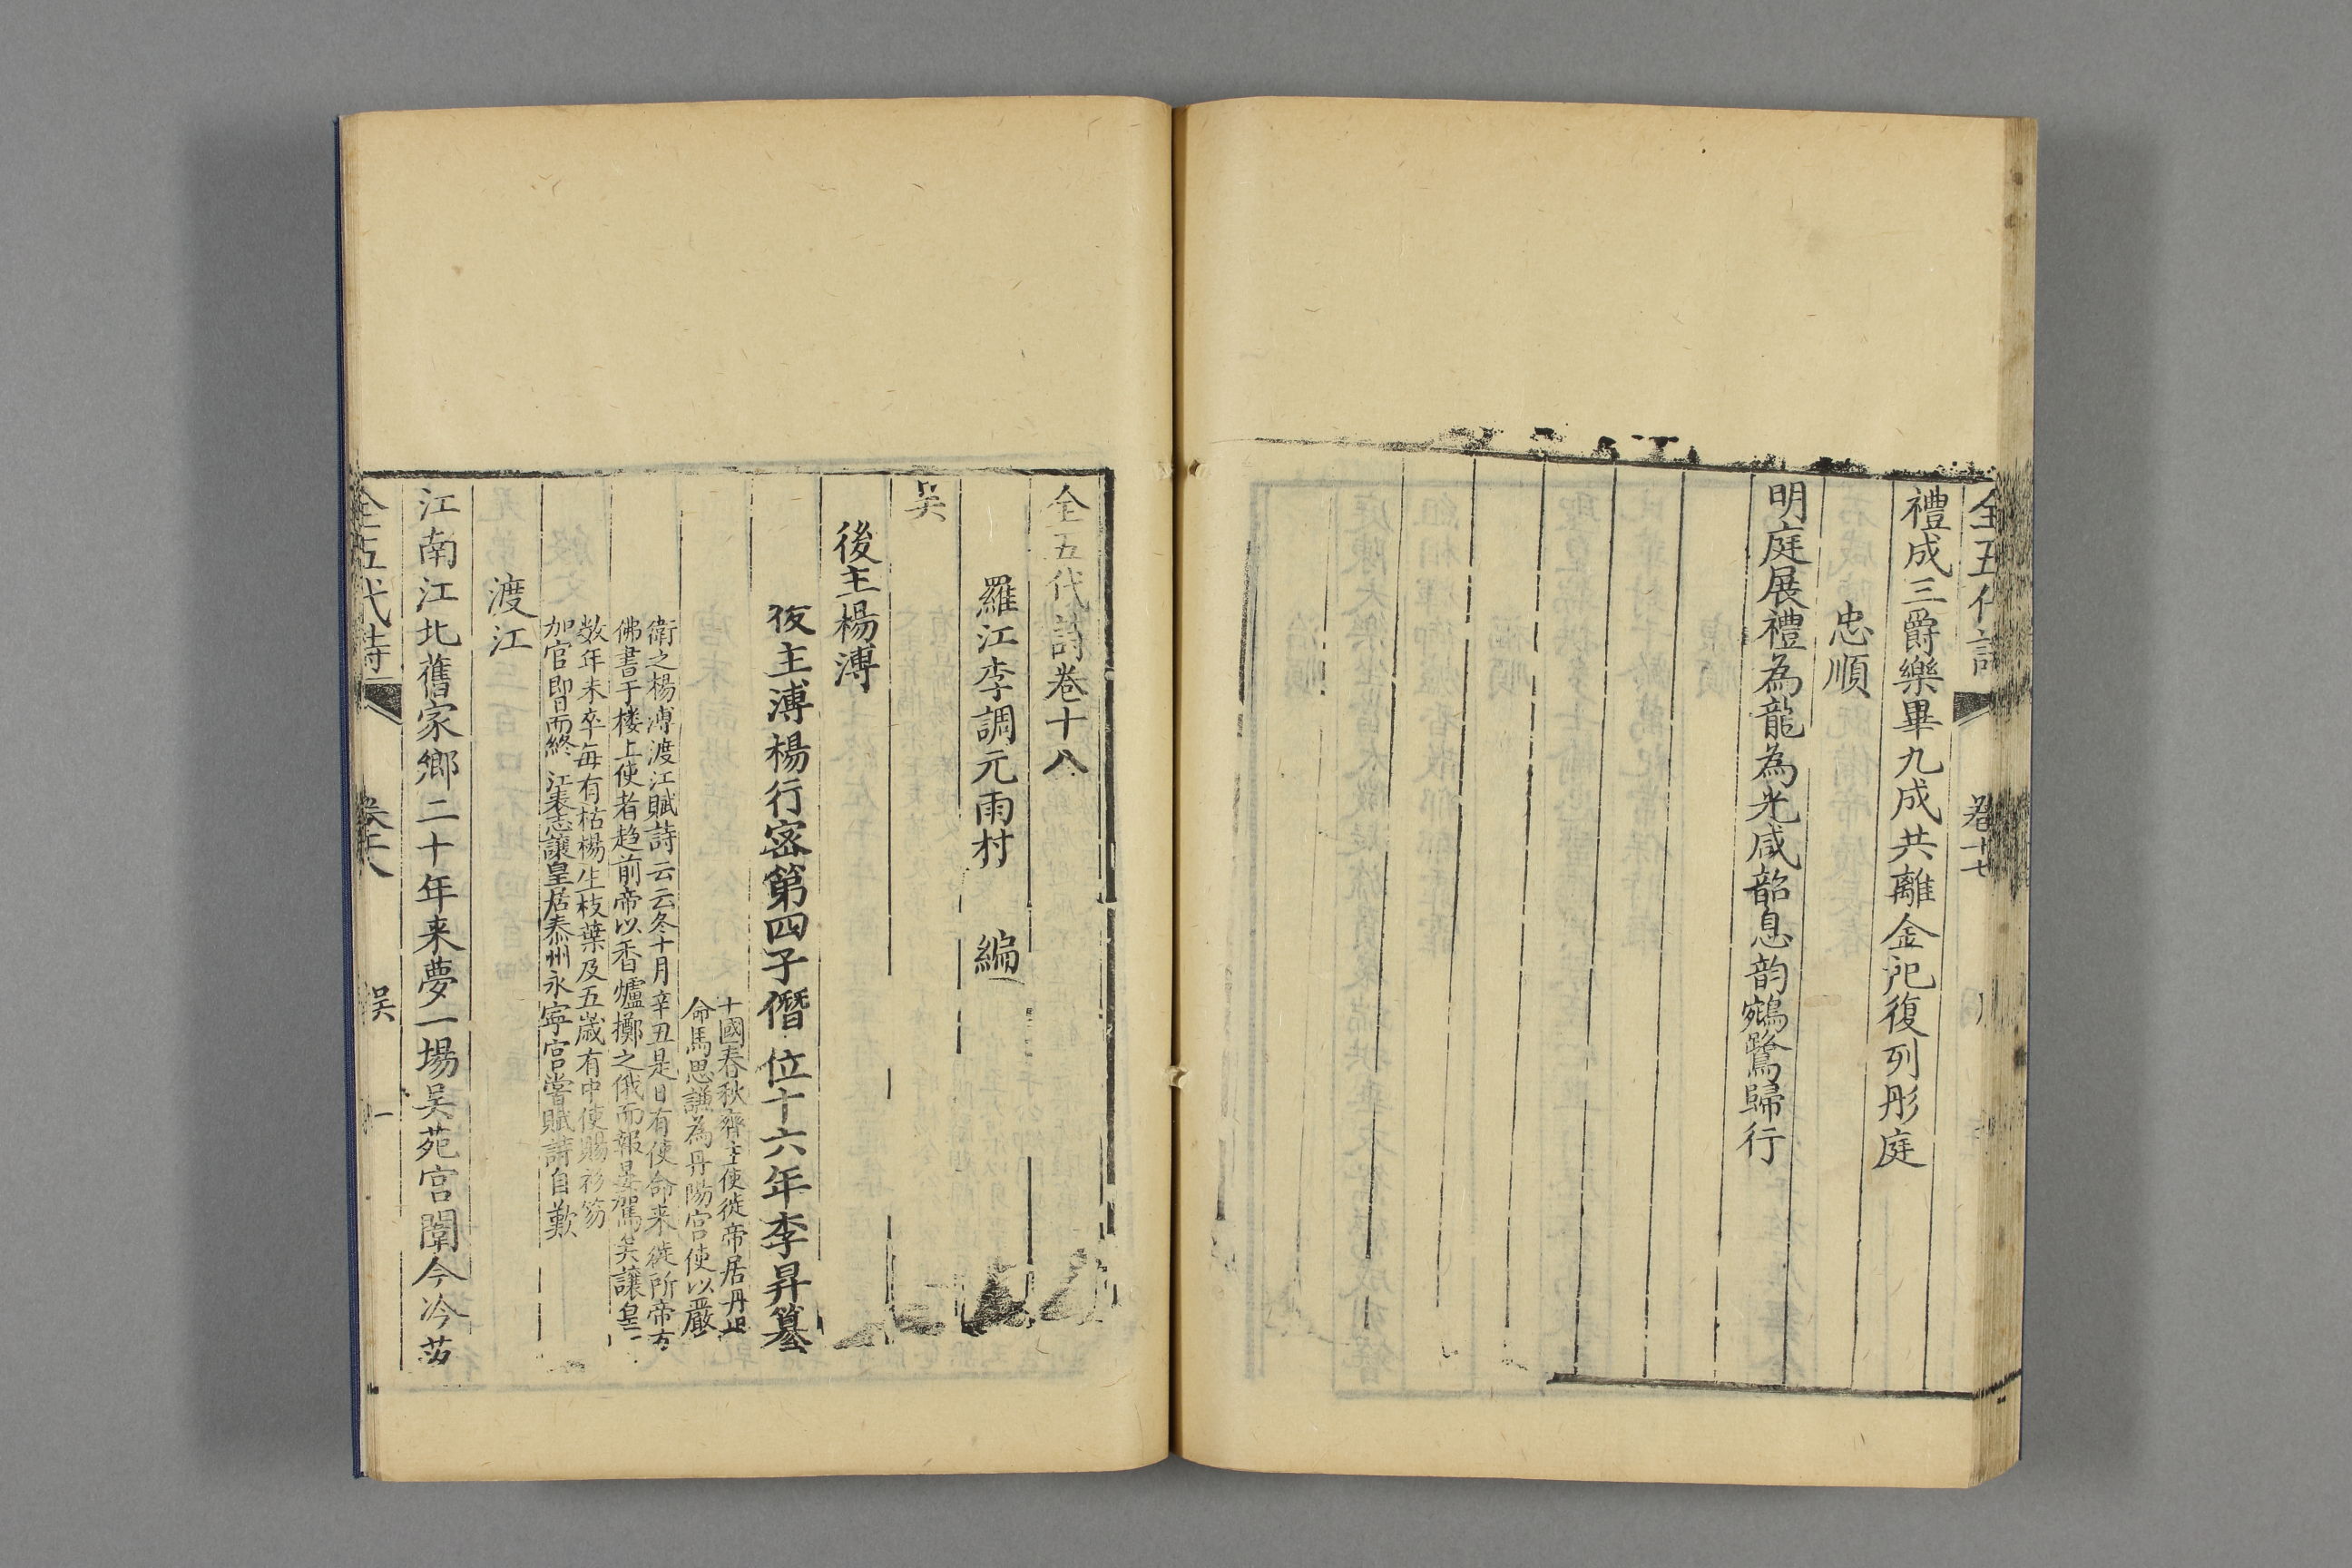 全五代詩
卷十七
禮成三爵樂畢九成共離金戺復列彤庭
忠順
明庭展禮為龍為光咸韶息韵鵷鷺歸行
全五代詩卷十八
羅江李調元雨村 編
吳
後主楊溥
後主溥楊行密第四子僭位十六年李昇篡
十國春秋齊主使徙帝居丹
命馬思謙為丹陽宮使以嚴
衛之楊溥渡江賦詩云云冬十月辛丑是日有使命来徙所帝方
佛書于楼上使者趋前帝以香爐擲之俄而報晏駕吳讓皇
数年未卒每有枯楊生枝葉及五歲有中使賜衫笏
加官即日而終 江表志讓皇居泰州永寧宮嘗賦詩自歎
渡江
江南江北舊家鄉二十年来夢一場吳苑宮闈今冷
全五代詩
卷十八
吳
一